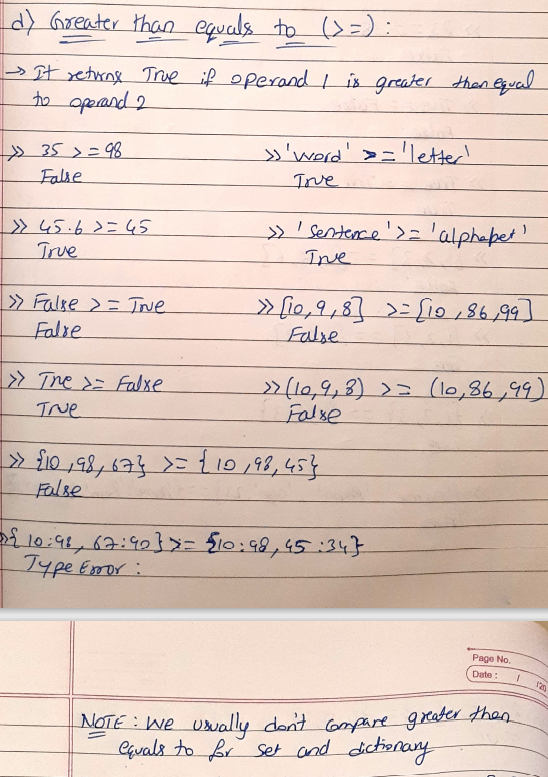 d) Greater than equals to (>=) :
→ It returns True if operand 1 is greater then equal
to operand 2
>> 35 >= 98
False
>> 'word' >= 'letter'
True
>> 45.6 >= 45
True
>> 'Sentence' >= 'alphabet'
True
>> False >= True
False
>> [10,9,8] >= [10,86,99]
False
>> True >= False
True
>> (10,9,8) >= (10,86,99)
False
>> {10,98,67} >= {10,98,45}
False
>> {10:98, 67:90} >= {10:98, 45:34}
Type Error :
Page No.
Date : / /20
NOTE : We usually don't compare greater then
equals to for set and dictionary